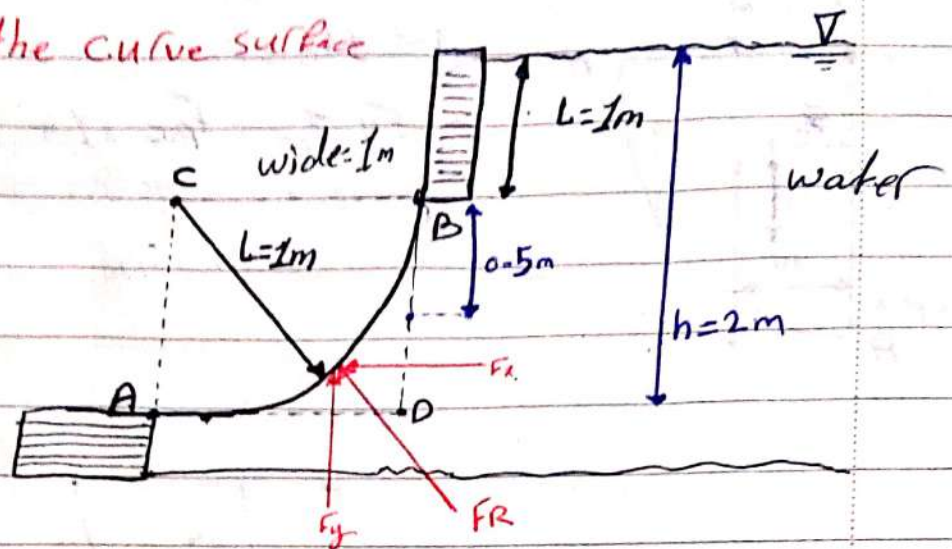 the curve surface
L=1m
wide=1m
water
C
B
L=1m
0.5m
h=2m
Fx
A
D
Fy
FR